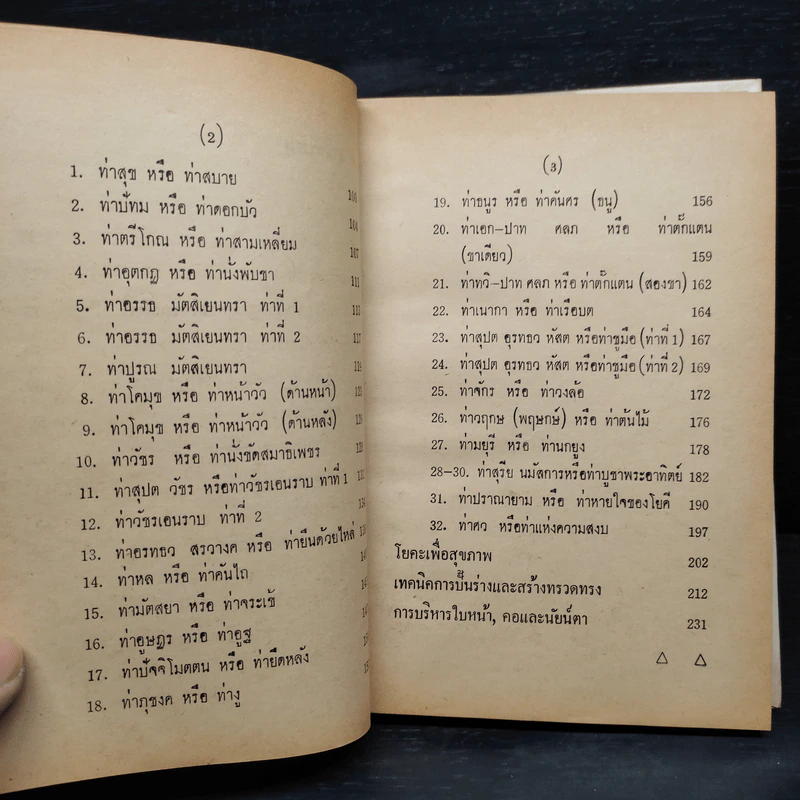 (2)
1. ท่าสุข หรือ ท่าสบาย
2. ท่าปัทม หรือ ท่าดอกบัว 104
3. ท่าตรีโกณ หรือ ท่าสามเหลี่ยม 107
4. ท่าอุตกฎ หรือ ท่านั่งพับขา 111
5. ท่าอรรธ มัตสิเยนทรา ท่าที่ 1 113
6. ท่าอรรธ มัตสิเยนทรา ท่าที่ 2
7. ท่าปูรณ มัตสิเยนทรา
8. ท่าโคมุข หรือ ท่าหน้าวัว (ด้านหน้า)
9. ท่าโคมุข หรือ ท่าหน้าวัว (ด้านหลัง)
10. ท่าวัชร หรือ ท่านั่งขัดสมาธิเพชร
11. ท่าสุปต วัชร หรือท่าวัชรเอนราบ ท่าที่ 1
12. ท่าวัชรเอนราบ ท่าที่ 2
13. ท่าอรทธว สรวางค หรือ ท่ายืนด้วยไหล่
14. ท่าหล หรือ ท่าคันไถ
15. ท่ามัตสยา หรือ ท่าจระเข้
16. ท่าอูษฎร หรือ ท่าอูฐ
17. ท่าปัจจิโมตตน หรือ ท่ายืดหลัง
18. ท่าภุชงค หรือ ท่างู
(3)
19. ท่าธนูร หรือ ท่าคันศร (ธนู) 156
20. ท่าเอก-ปาท ศลภ หรือ ท่าตั๊กแตน
(ขาเดียว) 159
21. ท่าทวิ-ปาท ศลภ หรือ ท่าตั๊กแตน (สองขา) 162
22. ท่าเนากา หรือ ท่าเรือบต 164
23. ท่าสุปต อุรทธว หัสต หรือท่าชูมือ (ท่าที่ 1) 167
24. ท่าสุปต อุรทธว หัสต หรือท่าชูมือ (ท่าที่ 2) 169
25. ท่าจักร หรือ ท่าวงล้อ 172
26. ท่าวฤกษ (พฤษกษ์) หรือ ท่าต้นไม้ 176
27. ท่ามยุรี หรือ ท่านกยูง 178
28-30. ท่าสุริย นมัสการหรือท่าบูชาพระอาทิตย์ 182
31. ท่าปราณายาม หรือ ท่าหายใจของโยคี 190
32. ท่าศว หรือท่าแห่งความสงบ 197
โยคะเพื่อสุขภาพ 202
เทคนิคการปั้นร่างและสร้างทรวดทรง 212
การบริหารใบหน้า, คอและนัยน์ตา 231